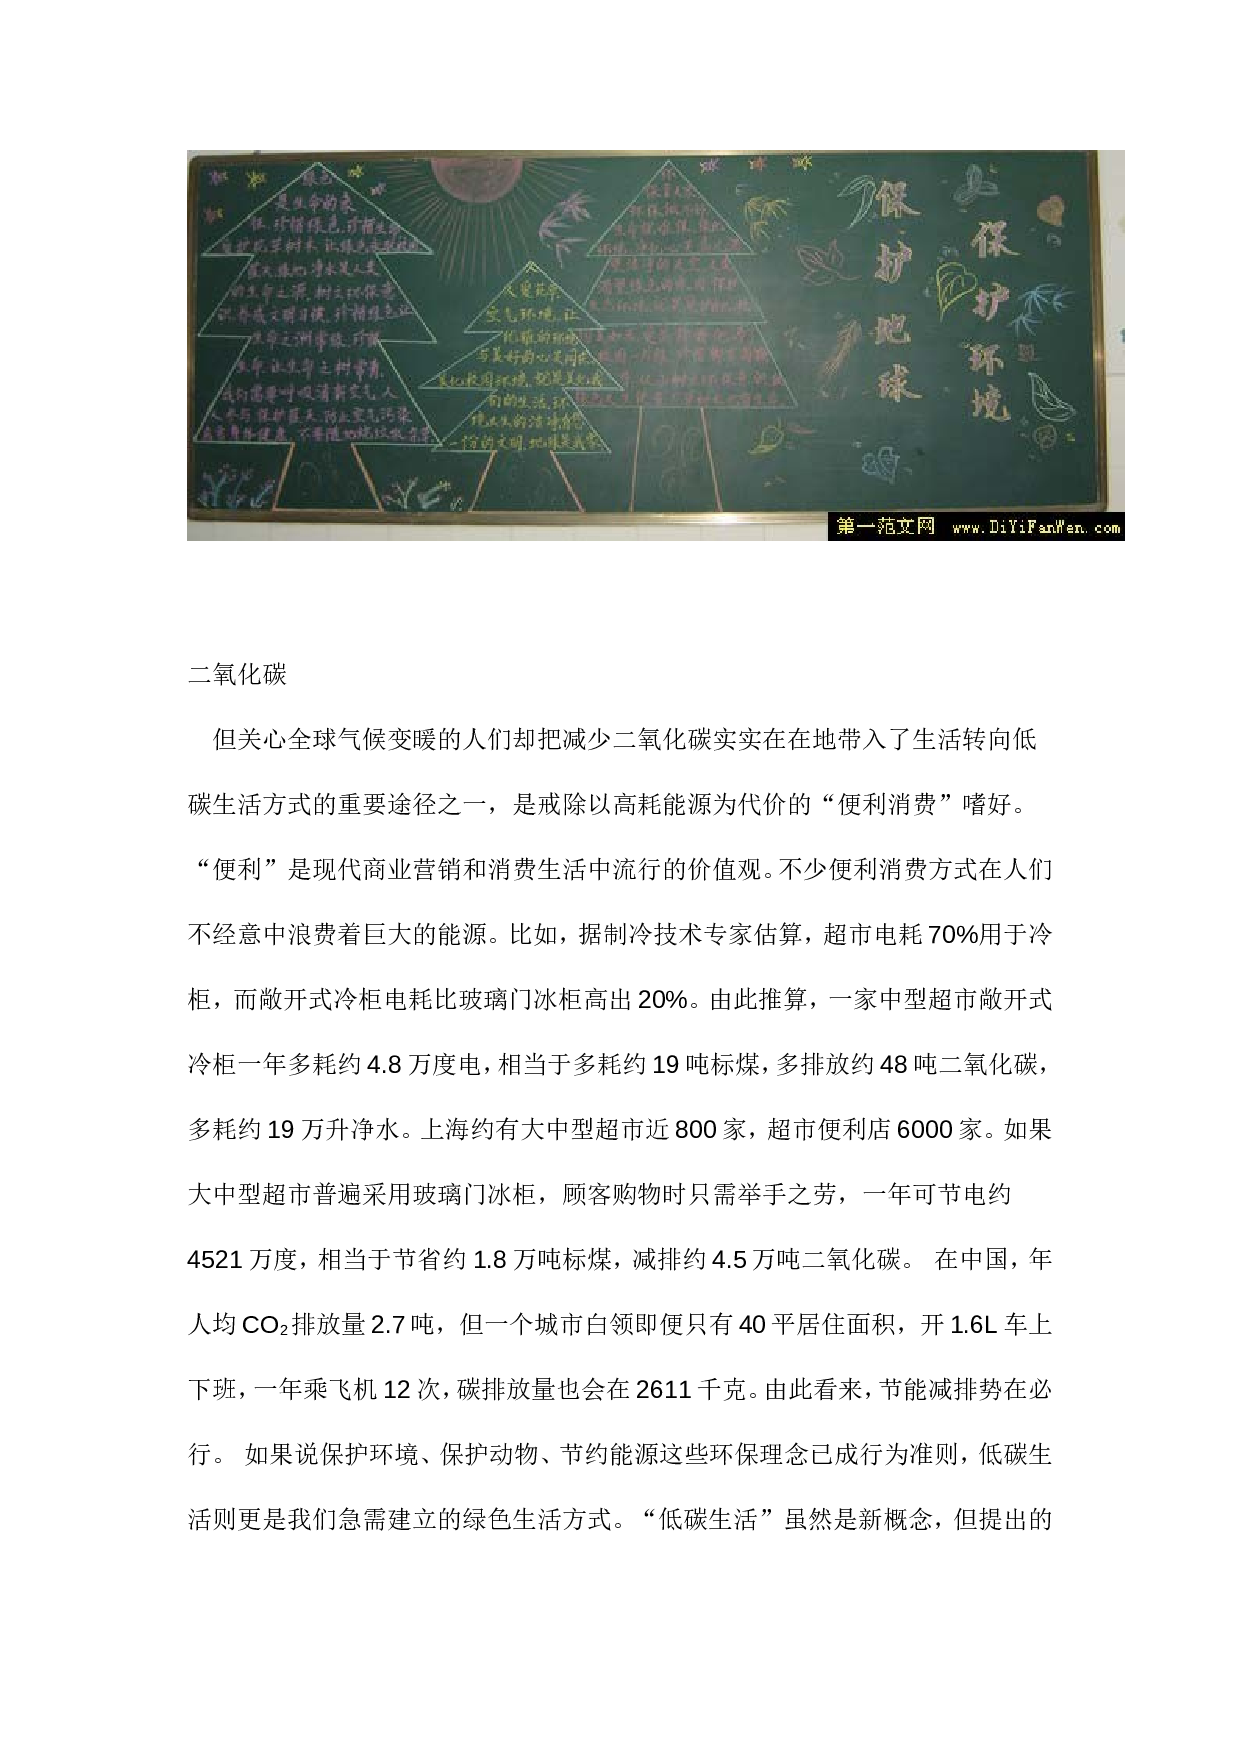 保护地球
保护环境
绿色
是生命的象
空气环境,让
第一范文网 www.DiYiFanWen.com
二氧化碳
但关心全球气候变暖的人们却把减少二氧化碳实实在在地带入了生活转向低
碳生活方式的重要途径之一，是戒除以高耗能源为代价的“便利消费”嗜好。
“便利”是现代商业营销和消费生活中流行的价值观。不少便利消费方式在人们
不经意中浪费着巨大的能源。比如，据制冷技术专家估算，超市电耗 70%用于冷
柜，而敞开式冷柜电耗比玻璃门冰柜高出 20%。由此推算，一家中型超市敞开式
冷柜一年多耗约 4.8 万度电，相当于多耗约 19 吨标煤，多排放约 48 吨二氧化碳，
多耗约 19 万升净水。上海约有大中型超市近 800 家，超市便利店 6000 家。如果
大中型超市普遍采用玻璃门冰柜，顾客购物时只需举手之劳，一年可节电约
4521 万度，相当于节省约 1.8 万吨标煤，减排约 4.5 万吨二氧化碳。 在中国，年
人均 CO₂ 排放量 2.7 吨，但一个城市白领即便只有 40 平居住面积，开 1.6L 车上
下班，一年乘飞机 12 次，碳排放量也会在 2611 千克。由此看来，节能减排势在必
行。 如果说保护环境、保护动物、节约能源这些环保理念已成行为准则，低碳生
活则更是我们急需建立的绿色生活方式。“低碳生活”虽然是新概念，但提出的